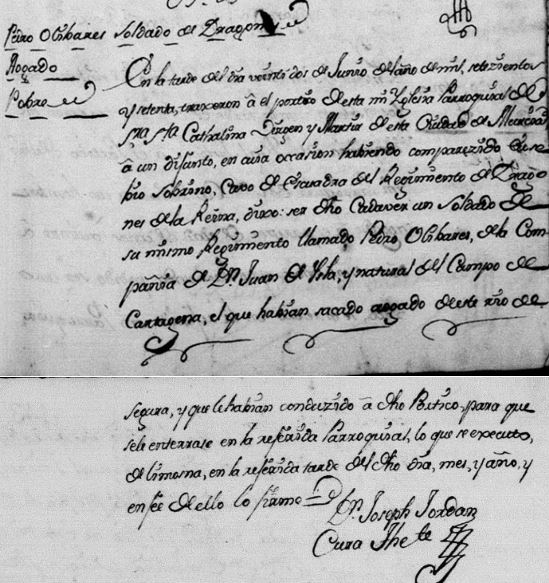 Pedro Olibares Soldado de Dragones
Aogado
Pobre
En la tarde del dia veinte y dos de Junio del año de mil, setezientos
y setenta, traxeron â el portico de esta mi Yglesia Parroquial de
Sta Cathalina Virxen y Martir de esta Ciudad de Murcia
â un difunto, en cuia occasion habiendo comparezido Euse
bio Sobrino, Cavo de Escuadra del Regimiento de Drago
nes de la Reina, dixo: ser dho Cadaver un Soldado de
su mismo Regimiento llamado Pedro Olibares, de la Com
pañia de Dn. Juan de Isla, y natural del Campo de
Cartagena, el que habian sacado aogado de este rio de
segura, y que le habian conduzido â dho Portico para que
se le enterrase en la referida Parroquial, lo que se executo,
de limosna, en la referida tarde del dho dia, mes, y año, y
en fee de ello lo firmo
Dn. Joseph Jordan
Cura Thete